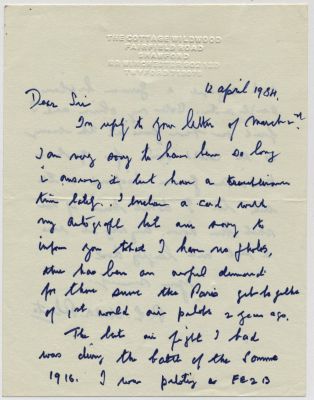 THE COTTAGE WILDWOOD
FAIRFIELD ROAD
SHAWFORD
TWYFORD
12 April 1984.
Dear Sir
In reply to your letter of March 2nd.
I am very sorry to have been so long
in answering it but have a
time lately. I enclose a card with
my autograph but am sorry to
inform you that I have no photos,
there has been an awful demand
for them since the Paris get-together
of 1st world air pilots 2 years ago.
The last air fight I had
was during the battle of the Somme
1916. I was piloting a FE2B